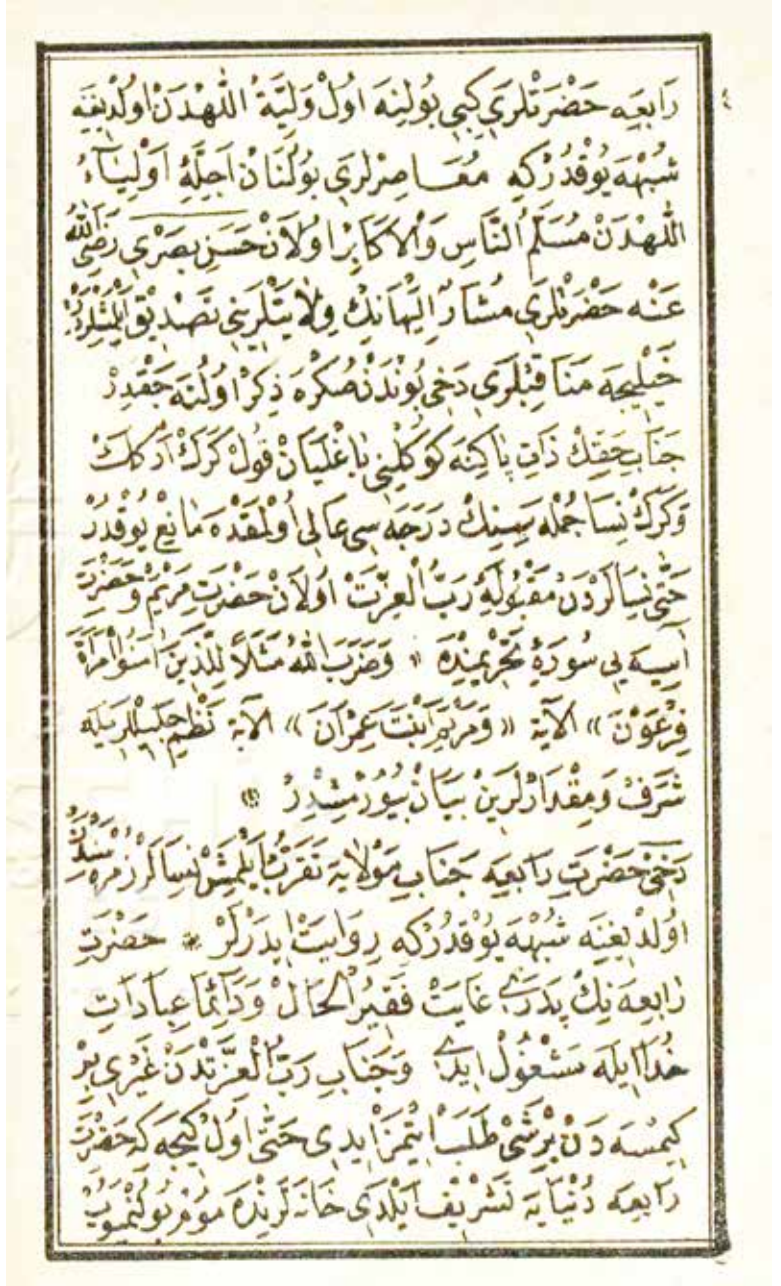 ٤
رَابِعَه حَضْرَتْلَرِي كِبِي بُولِنِه اُولْ وَلِيَّةُ اللّٰهْدَنْ اُولْدِيغِنَه
شُبْهَه يُوقْدُرْكِه مُعَاصِرْلَرِي بُولُنَانْ اَجِلَّهٔ اَوْلِيَآءُ
اللّٰهْدَنْ مُسَلَّمُ النَّاسِ وَالْاَكَابِرْ اُولَانْ حَسَنِ بَصْرِي رَضِيَ اللّٰهُ
عَنْه حَضْرَتْلَرِي مُشَارٌ اِلَيْهَانِكْ وِلَايَتْلَرِينِي تَصْدِيقْ اَيْلَمِشْلَرْدُرْ
خَيْلِيجَه مَنَاقِبْلَرِي دَخِي بُونْدَنْ صُكْرَه ذِكْرْ اُولُنَه جَقْدِرْ
جَنَابِ حَقِّكْ ذَاتِ پَاكِنَه كُوكْلِنِي بَاغْلَيَانْ قُولْ كَرَكْ اَرْكَكْ
وَكَرَكْ نِسَا جُمْلَه سِينِكْ دَرَجَه سِي عَالِي اُولْمَقْدَه مَانِعْ يُوقْدُرْ
حَتَّى نِسَالَرْدَنْ مَقْبُولَهٔ رَبُّ الْعِزَّتْ اُولَانْ حَضْرَتِ مَرْيَمْ وَحَضْرَتِ
آسِيَه يِي سُورَهٔ تَحْرِيمِنْدَه « وَضَرَبَ اللّٰهُ مَثَلًا لِلَّذِينَ اٰمَنُوا امْرَأَةَ
فِرْعَوْنَ » الآيَة « وَمَرْيَمَ ابْنَتَ عِمْرَانَ » الآيَة نَظْمِ جَلِيلْلَرِيلَه
شَرَفْ وَمِقْدَارْلَرِينْ بَيَانْ بُيُورْمِشْدِرْ
دَخِي حَضْرَتِ رَابِعَه جَنَابِ مَوْلَايَه تَقَرُّبْ اَيْلَمِشْ نِسَالَرْ زُمْرَه سِنْدَنْ
اُولْدِيغِنَه شُبْهَه يُوقْدُرْكِه رِوَايَتْ اِيدَرْلَرْ * حَضْرَتِ
رَابِعَه نِكْ پِدَرِي غَايَتْ فَقِيرُ الْحَالْ وَدَآئِمَا عِبَادَاتِ
خُدَا اِيلَه مَشْغُولْ اِيدِي وَجَنَابِ رَبُّ الْعِزَّتْدَنْ غَيْرِي بِرْ
كِيمْسَه دَنْ بِرْشَيْ طَلَبْ اِيتْمَزْ اِيدِي حَتَّى اُولْ كِيجَه كِه حَضْرَتِ
رَابِعَه دُنْيَايَه تَشْرِيفْ اَيْلَدِي خَانَه لَرِنْدَه مُومْ بُولُنْمَيُوبْ